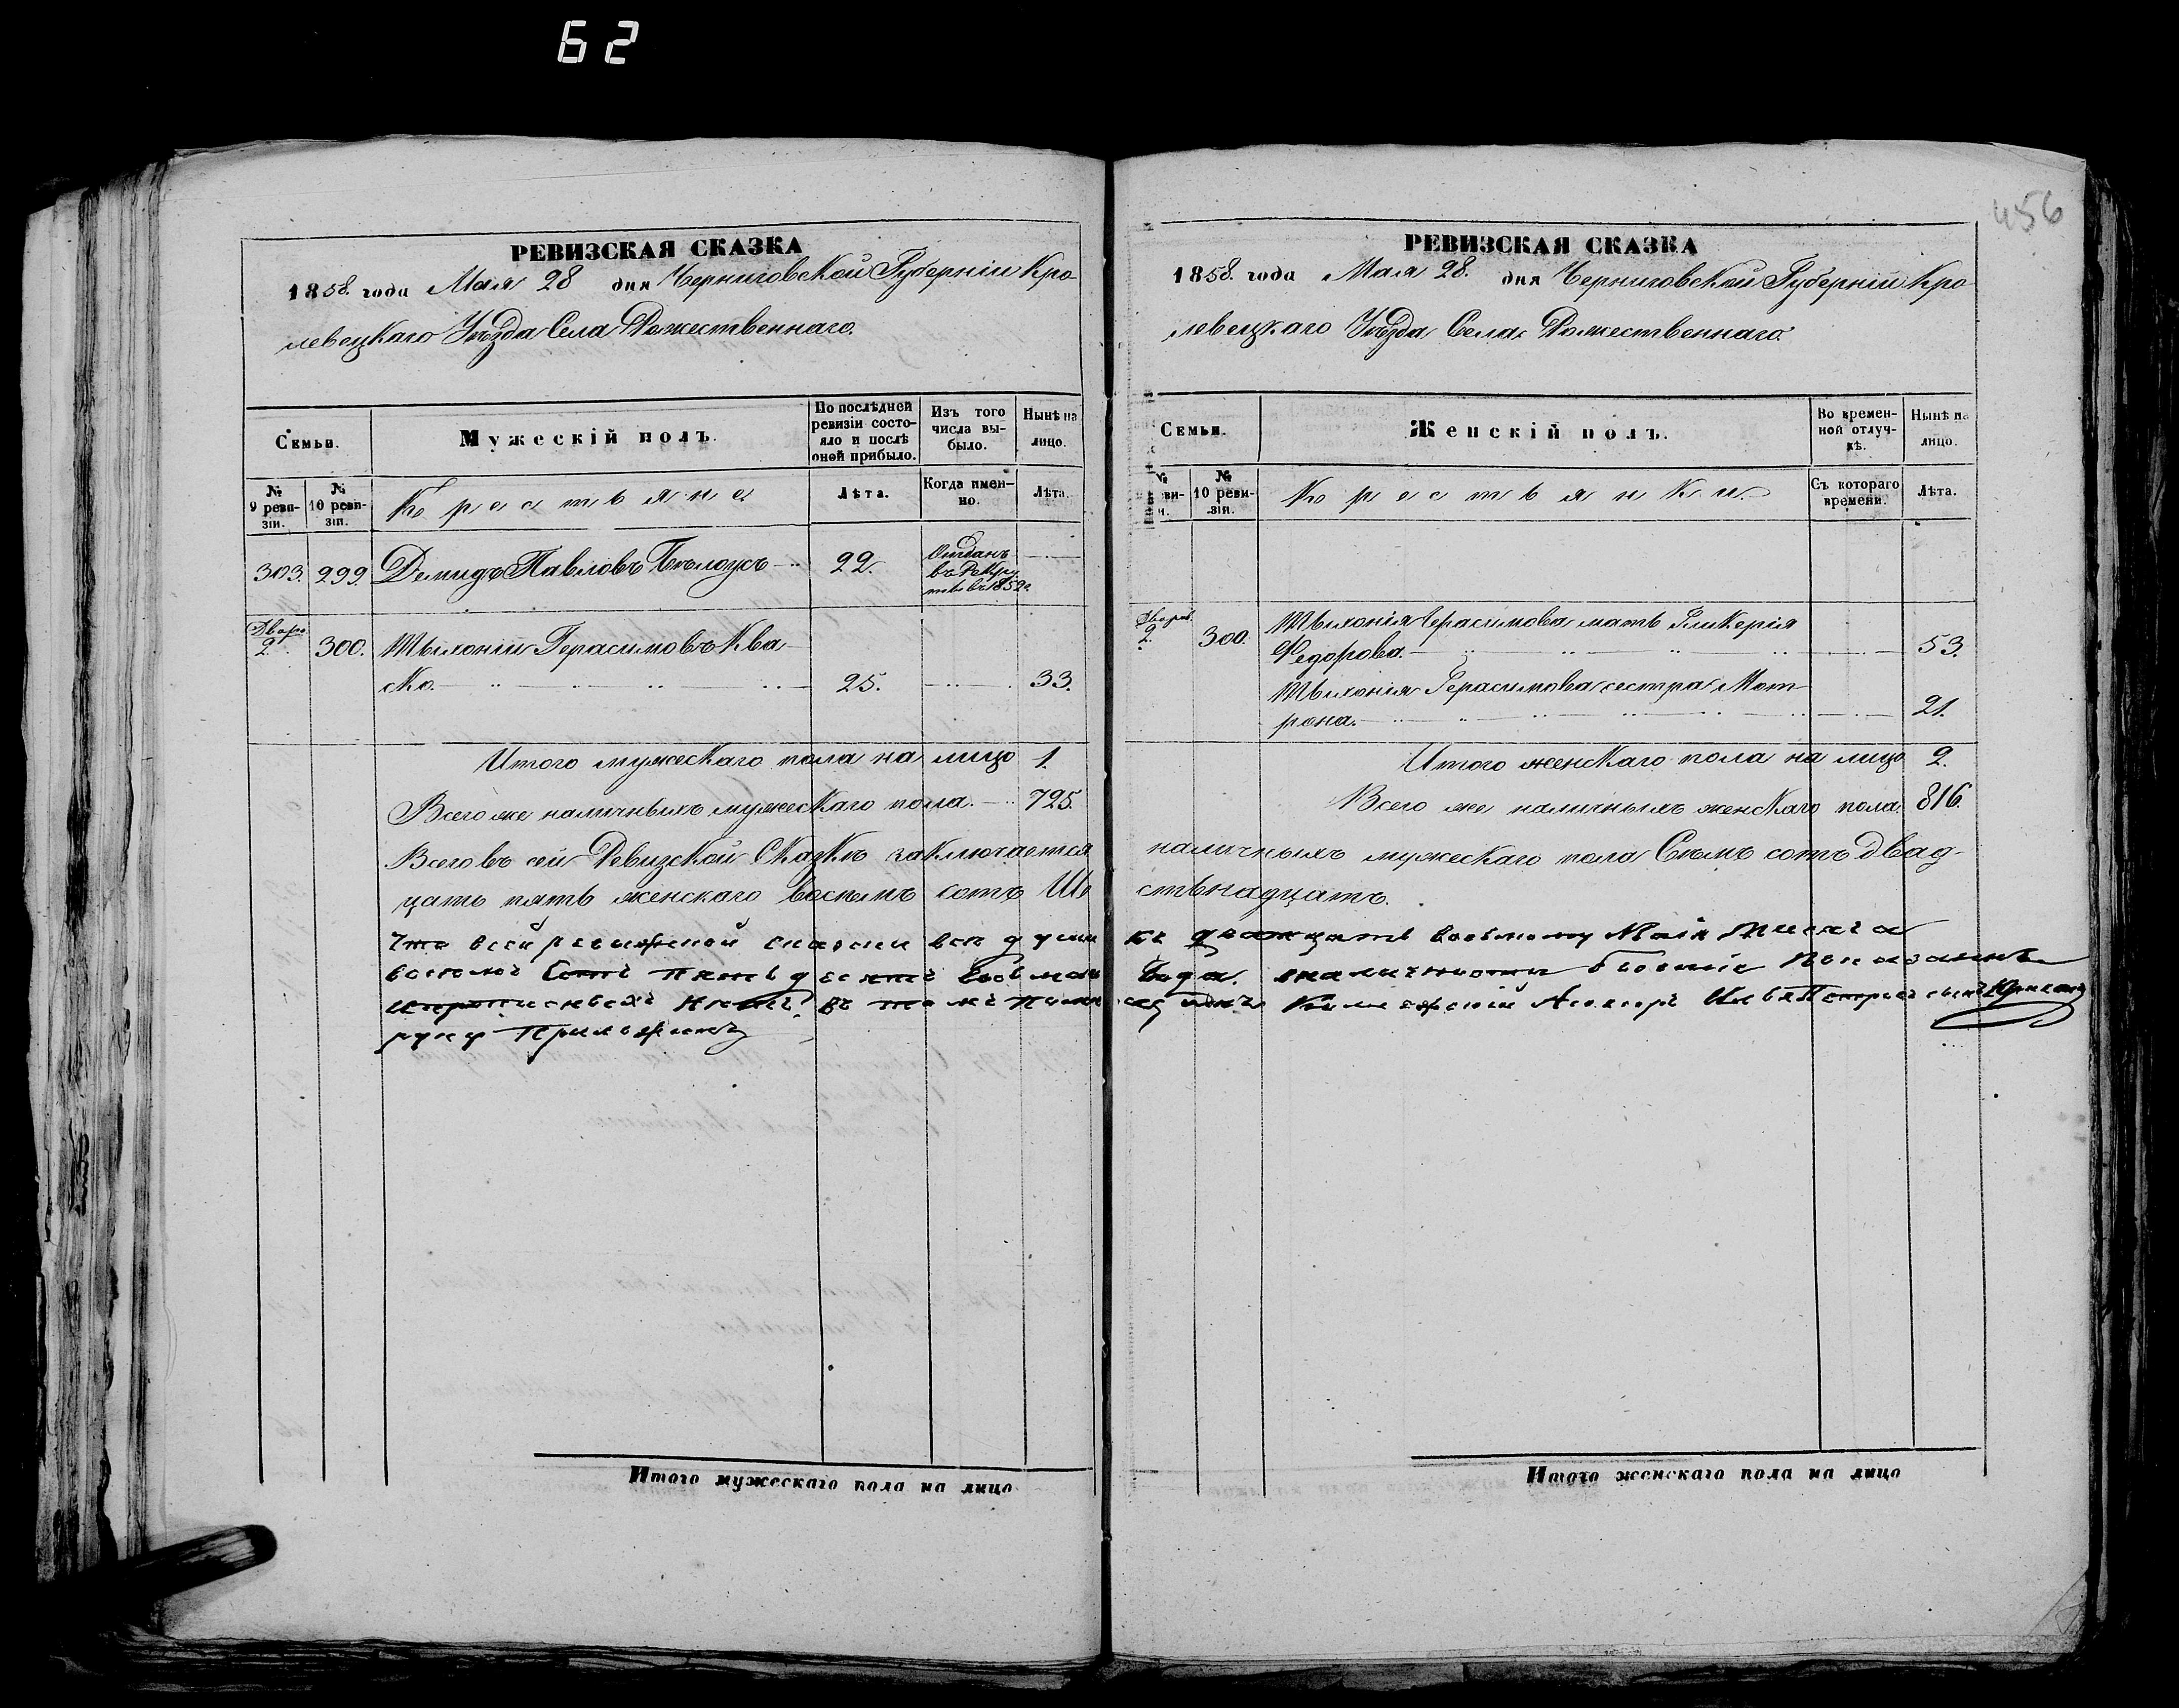 62
456
РЕВИЗСКАЯ СКАЗКА
1858. года Мая 28 дня Черниговской Губерніи Кро-
левецкаго Уѣзда Села Рожественнаго.
Семьи.
Мужескій полъ.
По послѣдней ревизіи состояло и послѣ оной прибыло.
Изъ того числа выбыло.
Нынѣ на лицо.
№ 9 ревизіи.
№ 10 ревизіи.
Крестьяне
Лѣта.
Когда именно.
Лѣта.
303. 299. Демидъ Павловъ Бѣлоусъ 22. Отданъ въ Рекруты въ 1852г
Двора
2. 300. Тыхоній Герасимовъ Ква-
ско. 25. 33.
Итого мужескаго пола на лицо 1.
Всего же наличныхъ мужескаго пола. 725.
РЕВИЗСКАЯ СКАЗКА
1858. года Мая 28. дня Черниговской Губерніи Кро-
левецкаго Уѣзда Села Рожественнаго.
Семьи.
Женскій полъ.
Во временной отлучкѣ.
Нынѣ на лицо.
№ 10 ревизіи.
Крестьянки.
Съ котораго времени.
Лѣта.
2. 300. Тыхонія Герасимова мать Гликерія
Федорова. 53.
Тыхонія Герасимова сестра Мот-
рона. 21.
Итого женскаго пола на лицо 2.
Всего же наличныхъ женскаго пола. 816.
Всего въ сей Ревизской Сказкѣ заключается наличныхъ мужескаго пола Семъ сотъ двад-
цать пять женскаго восемъ сотъ Шестьнадцать.
Что всей ревижской сказки все души къ двадцать восьмому Маія Месяца
восемъ Сотъ пятьдесятъ восьмаго года. налично
нетъ въ томъ Илья Петровъ сынъ
руку Приложилъ
Итого мужескаго пола на лицо
Итого женскаго пола на лицо